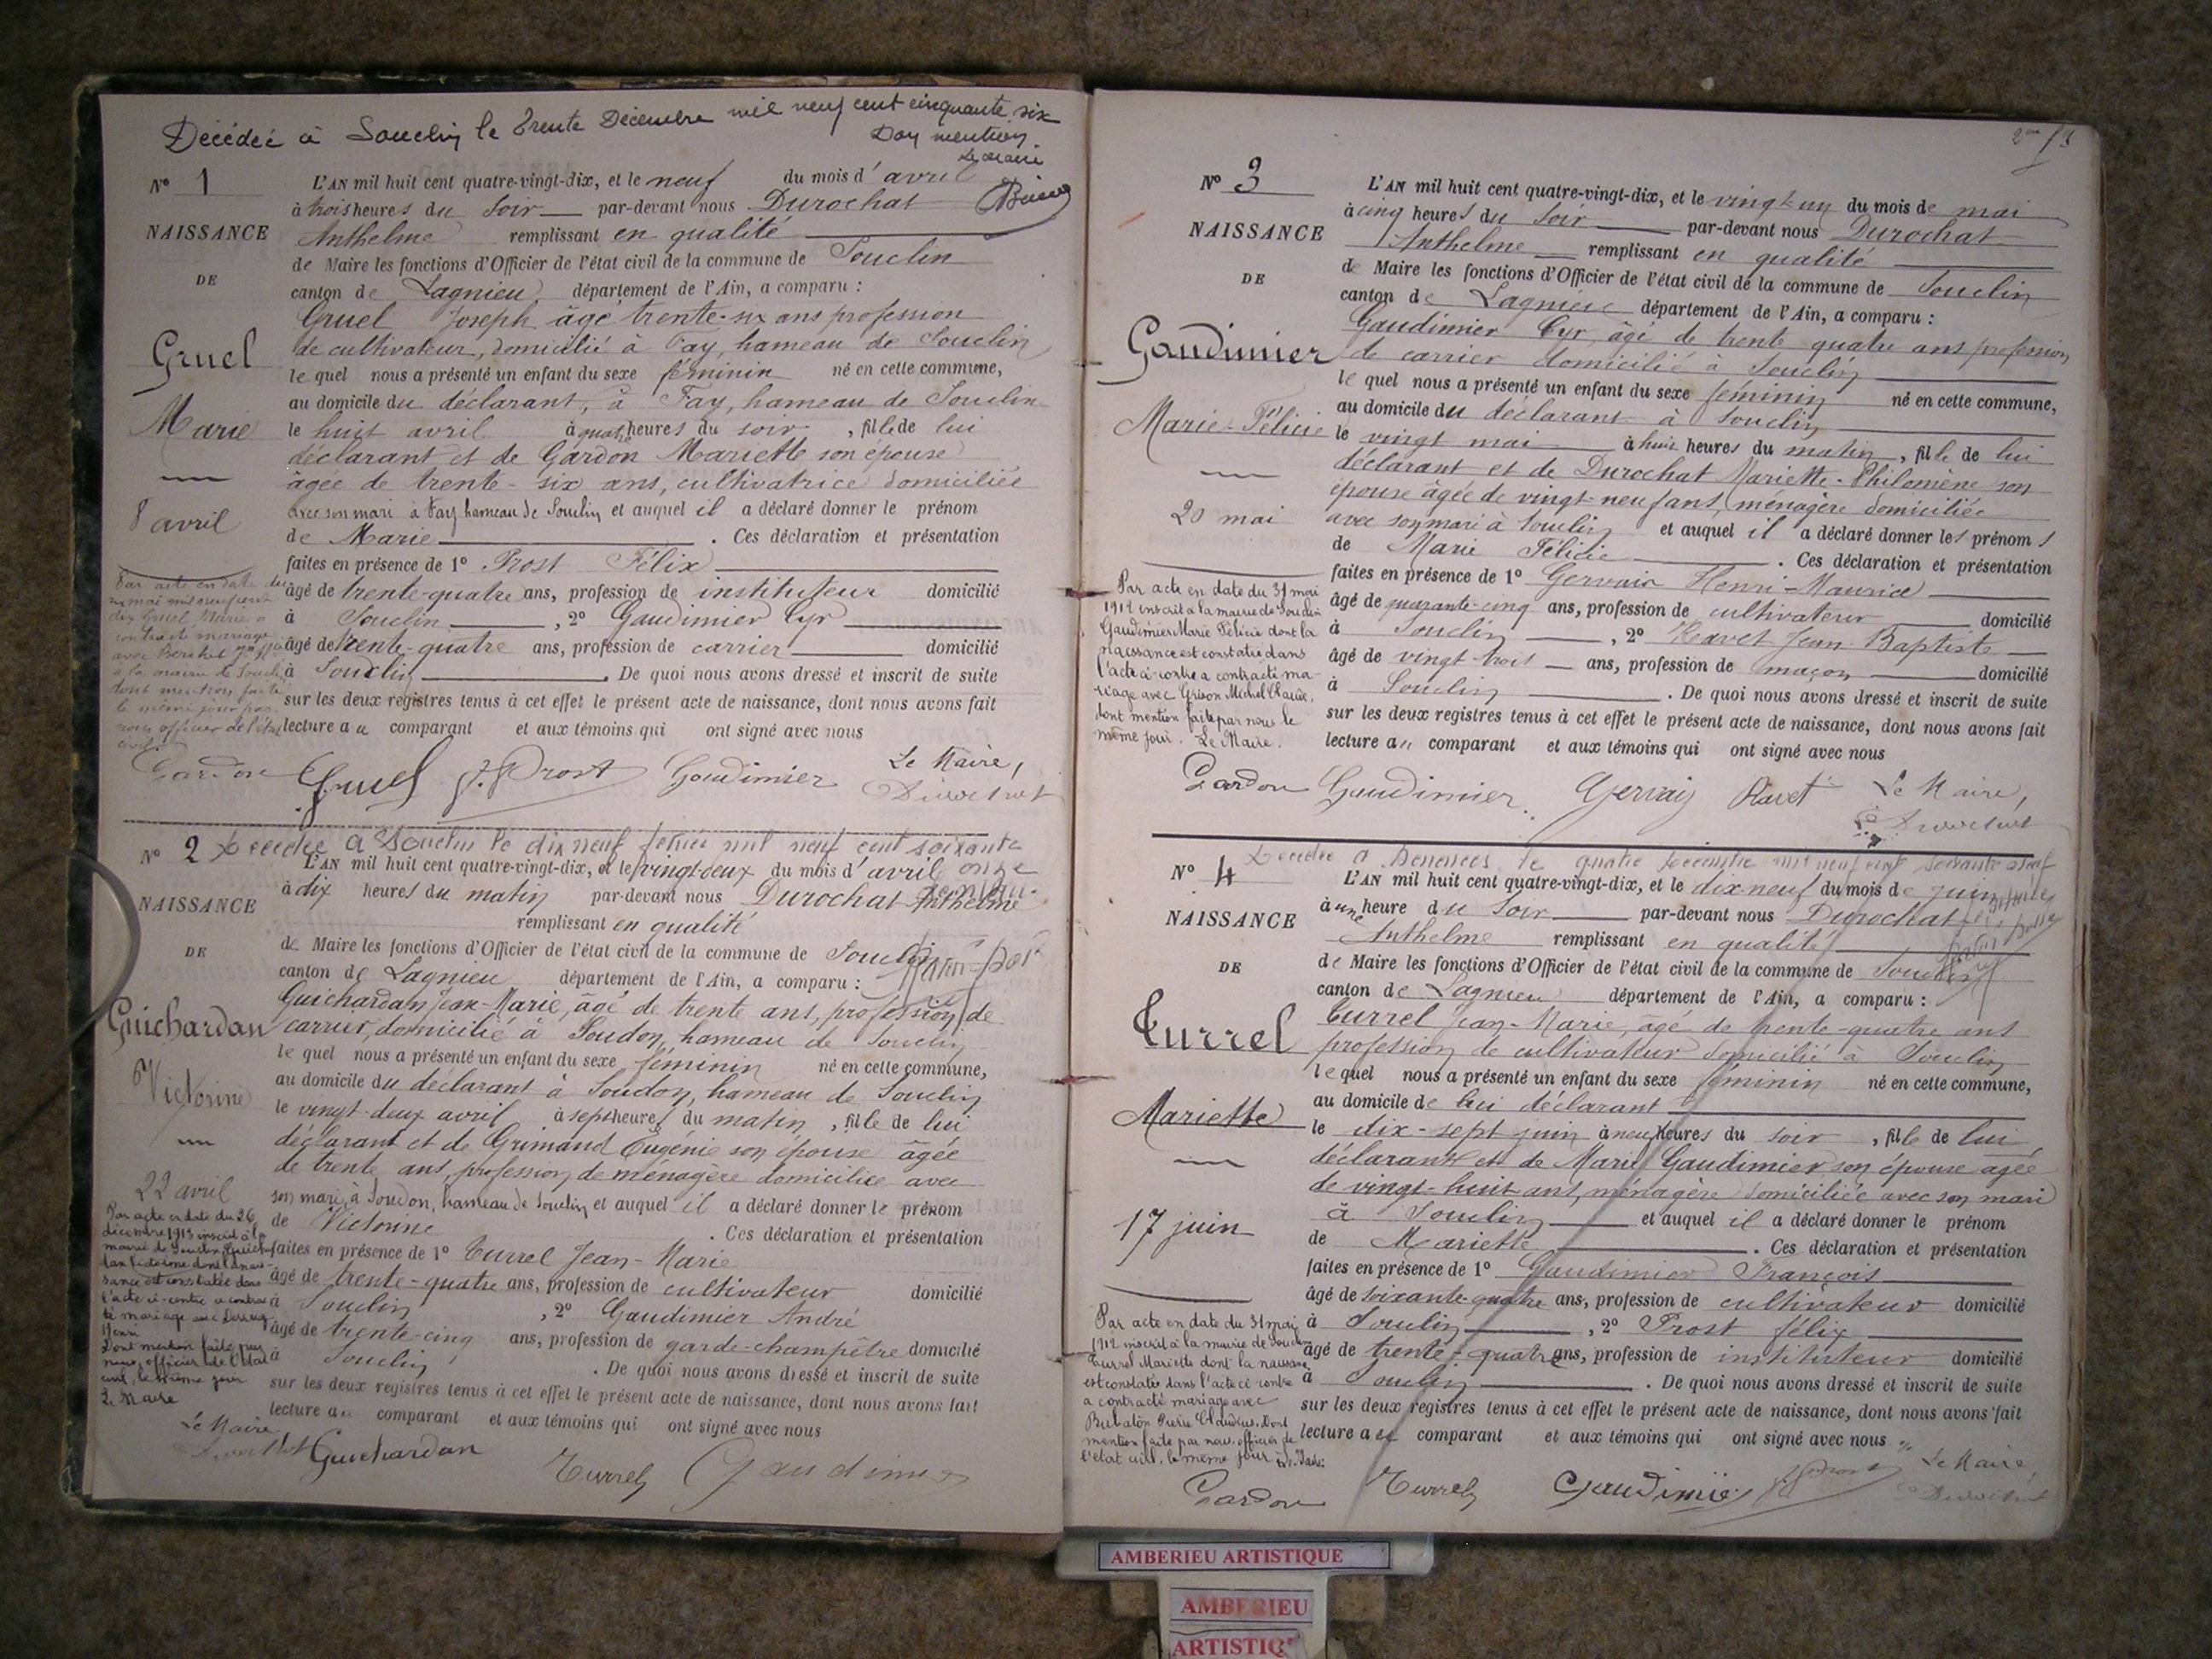 Décédée à Souclin le trente Décembre mil neuf cent cinquante six
Dont mention
Le Maire
N° 1
NAISSANCE
DE
Gruel
Marie
8 avril
L'AN mil huit cent quatre-vingt-dix, et le neuf du mois d'avril
à trois heures du soir par-devant nous Durochat
Anthelme remplissant en qualité
de Maire les fonctions d'Officier de l'état civil de la commune de Souclin
canton de Lagnieu département de l'Ain, a comparu :
Gruel Joseph âgé trente-six ans profession
de cultivateur, domicilié à Fay, hameau de Souclin
lequel nous a présenté un enfant du sexe féminin né en cette commune,
au domicile du déclarant, à Fay, hameau de Souclin
le huit avril à quatre heures du soir, fille de lui
déclarant et de Gardon Mariette son épouse
âgée de trente-six ans, cultivatrice domiciliée
avec son mari à Fay hameau de Souclin et auquel il a déclaré donner le prénom
de Marie. Ces déclaration et présentation
faites en présence de 1° Prost Félix
âgé de trente-quatre ans, profession de instituteur domicilié
à Souclin, 2° Gaudimier Cyr
âgé de trente-quatre ans, profession de carrier domicilié
à Souclin. De quoi nous avons dressé et inscrit de suite
sur les deux registres tenus à cet effet le présent acte de naissance, dont nous avons fait
lecture au comparant et aux témoins qui ont signé avec nous
Par acte en date du
mai mil neuf cent
dix Gruel Marie a
contracté mariage
avec
à la mairie de Souclin
dont mention faite
le même jour par
nous officier de l'état
civil
Le Maire,
Gardon Gruel F. Prost Gaudimier Durochat
N° 2
Décédée à Souclin le dix neuf février mil neuf cent soixante
onze
NAISSANCE
DE
Guichardan
Victorine
22 avril
L'AN mil huit cent quatre-vingt-dix, et le vingt-deux du mois d'avril
à dix heures du matin par-devant nous Durochat Anthelme
remplissant en qualité
de Maire les fonctions d'Officier de l'état civil de la commune de Souclin
canton de Lagnieu département de l'Ain, a comparu :
Guichardan Jean-Marie, âgé de trente ans, profession de
carrier, domicilié à Soudon, hameau de Souclin
lequel nous a présenté un enfant du sexe féminin né en cette commune,
au domicile du déclarant à Soudon, hameau de Souclin
le vingt-deux avril à sept heures du matin, fille de lui
déclarant et de Grimand Eugénie son épouse âgée
de trente ans, profession de ménagère domiciliée avec
son mari à Soudon, hameau de Souclin et auquel il a déclaré donner le prénom
de Victorine. Ces déclaration et présentation
faites en présence de 1° Turrel Jean-Marie
âgé de trente-quatre ans, profession de cultivateur domicilié
à Souclin, 2° Gaudimier André
âgé de trente-cinq ans, profession de garde-champêtre domicilié
à Souclin. De quoi nous avons dressé et inscrit de suite
sur les deux registres tenus à cet effet le présent acte de naissance, dont nous avons fait
lecture au comparant et aux témoins qui ont signé avec nous
Par acte en date du 26
décembre 1913 inscrit à la
mairie de Souclin Guichar
dan Victorine dont la nais-
sance est constatée dans
l'acte ci-contre a contrac
té mariage avec
Henri
Dont mention faite par
nous, officier de l'état
civil, le même jour
Le Maire
Le Maire
Durochat Guichardan Turrel Gaudimier
N° 3
NAISSANCE
DE
Gaudimier
Marie-Félicie
20 mai
L'AN mil huit cent quatre-vingt-dix, et le vingt-un du mois de mai
à cinq heures du soir par-devant nous Durochat
Anthelme remplissant en qualité
de Maire les fonctions d'Officier de l'état civil de la commune de Souclin
canton de Lagnieu département de l'Ain, a comparu :
Gaudimier Cyr, âgé de trente quatre ans profession
de carrier domicilié à Souclin
lequel nous a présenté un enfant du sexe féminin né en cette commune,
au domicile du déclarant à Souclin
le vingt mai à huit heures du matin, fille de lui
déclarant et de Durochat Mariette-Philomène son
épouse âgée de vingt-neuf ans, ménagère domiciliée
avec son mari à Souclin et auquel il a déclaré donner les prénoms
de Marie Félicie. Ces déclaration et présentation
faites en présence de 1° Gervais Henri-Maurice
âgé de quarante-cinq ans, profession de cultivateur domicilié
à Souclin, 2° Ravet Jean-Baptiste
âgé de vingt-trois ans, profession de maçon domicilié
à Souclin. De quoi nous avons dressé et inscrit de suite
sur les deux registres tenus à cet effet le présent acte de naissance, dont nous avons fait
lecture au comparant et aux témoins qui ont signé avec nous
Par acte en date du 31 mai
1912 inscrit à la mairie de Souclin
Gaudimier Marie Félicie dont la
naissance est constatée dans
l'acte ci-contre a contracté ma-
riage avec Grison Michel Claude,
dont mention faite par nous le
même jour. Le Maire.
Le Maire,
Gardon Gaudimier Gervais Ravet Durochat
N° 4
Décédée à Bénonces le quatre décembre mil neuf cent soixante neuf
NAISSANCE
DE
Turrel
Mariette
17 juin
L'AN mil huit cent quatre-vingt-dix, et le dix-neuf du mois de juin
à une heure du soir par-devant nous Durochat
Anthelme remplissant en qualité
de Maire les fonctions d'Officier de l'état civil de la commune de Souclin
canton de Lagnieu département de l'Ain, a comparu :
Turrel Jean-Marie, âgé de trente-quatre ans
profession de cultivateur domicilié à Souclin
lequel nous a présenté un enfant du sexe féminin né en cette commune,
au domicile de lui déclarant
le dix-sept juin à neuf heures du soir, fille de lui
déclarant et de Marie Gaudimier son épouse âgée
de vingt-huit ans, ménagère domiciliée avec son mari
à Souclin et auquel il a déclaré donner le prénom
de Mariette. Ces déclaration et présentation
faites en présence de 1° Gaudimier François
âgé de soixante-quatre ans, profession de cultivateur domicilié
à Souclin, 2° Prost félix
âgé de trente-quatre ans, profession de instituteur domicilié
à Souclin. De quoi nous avons dressé et inscrit de suite
sur les deux registres tenus à cet effet le présent acte de naissance, dont nous avons fait
lecture au comparant et aux témoins qui ont signé avec nous
Par acte en date du 31 mai
1912 inscrit à la mairie de Souclin
Turrel Mariette dont la naissance
est constatée dans l'acte ci contre
a contracté mariage avec
Pierre Claudius. Dont
mention faite par nous, officier de
l'état civil, le même jour
Le Maire,
Gardon Turrel Gaudimier F. Prost Durochat
AMBERIEU ARTISTIQUE
AMBERIEU
ARTISTIQ